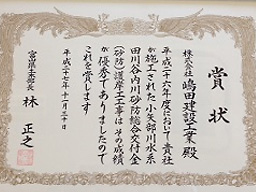 賞状
株式会社
嶋田建設工業 殿
平成二十六年度において貴社
が施工された小矢部川水系
田川谷内川砂防総合交付金
(砂防)護岸工工事は その成績
が優秀でありましたので
これを賞します
平成二十七年十一月三十日
富山県土木部長 林 正之